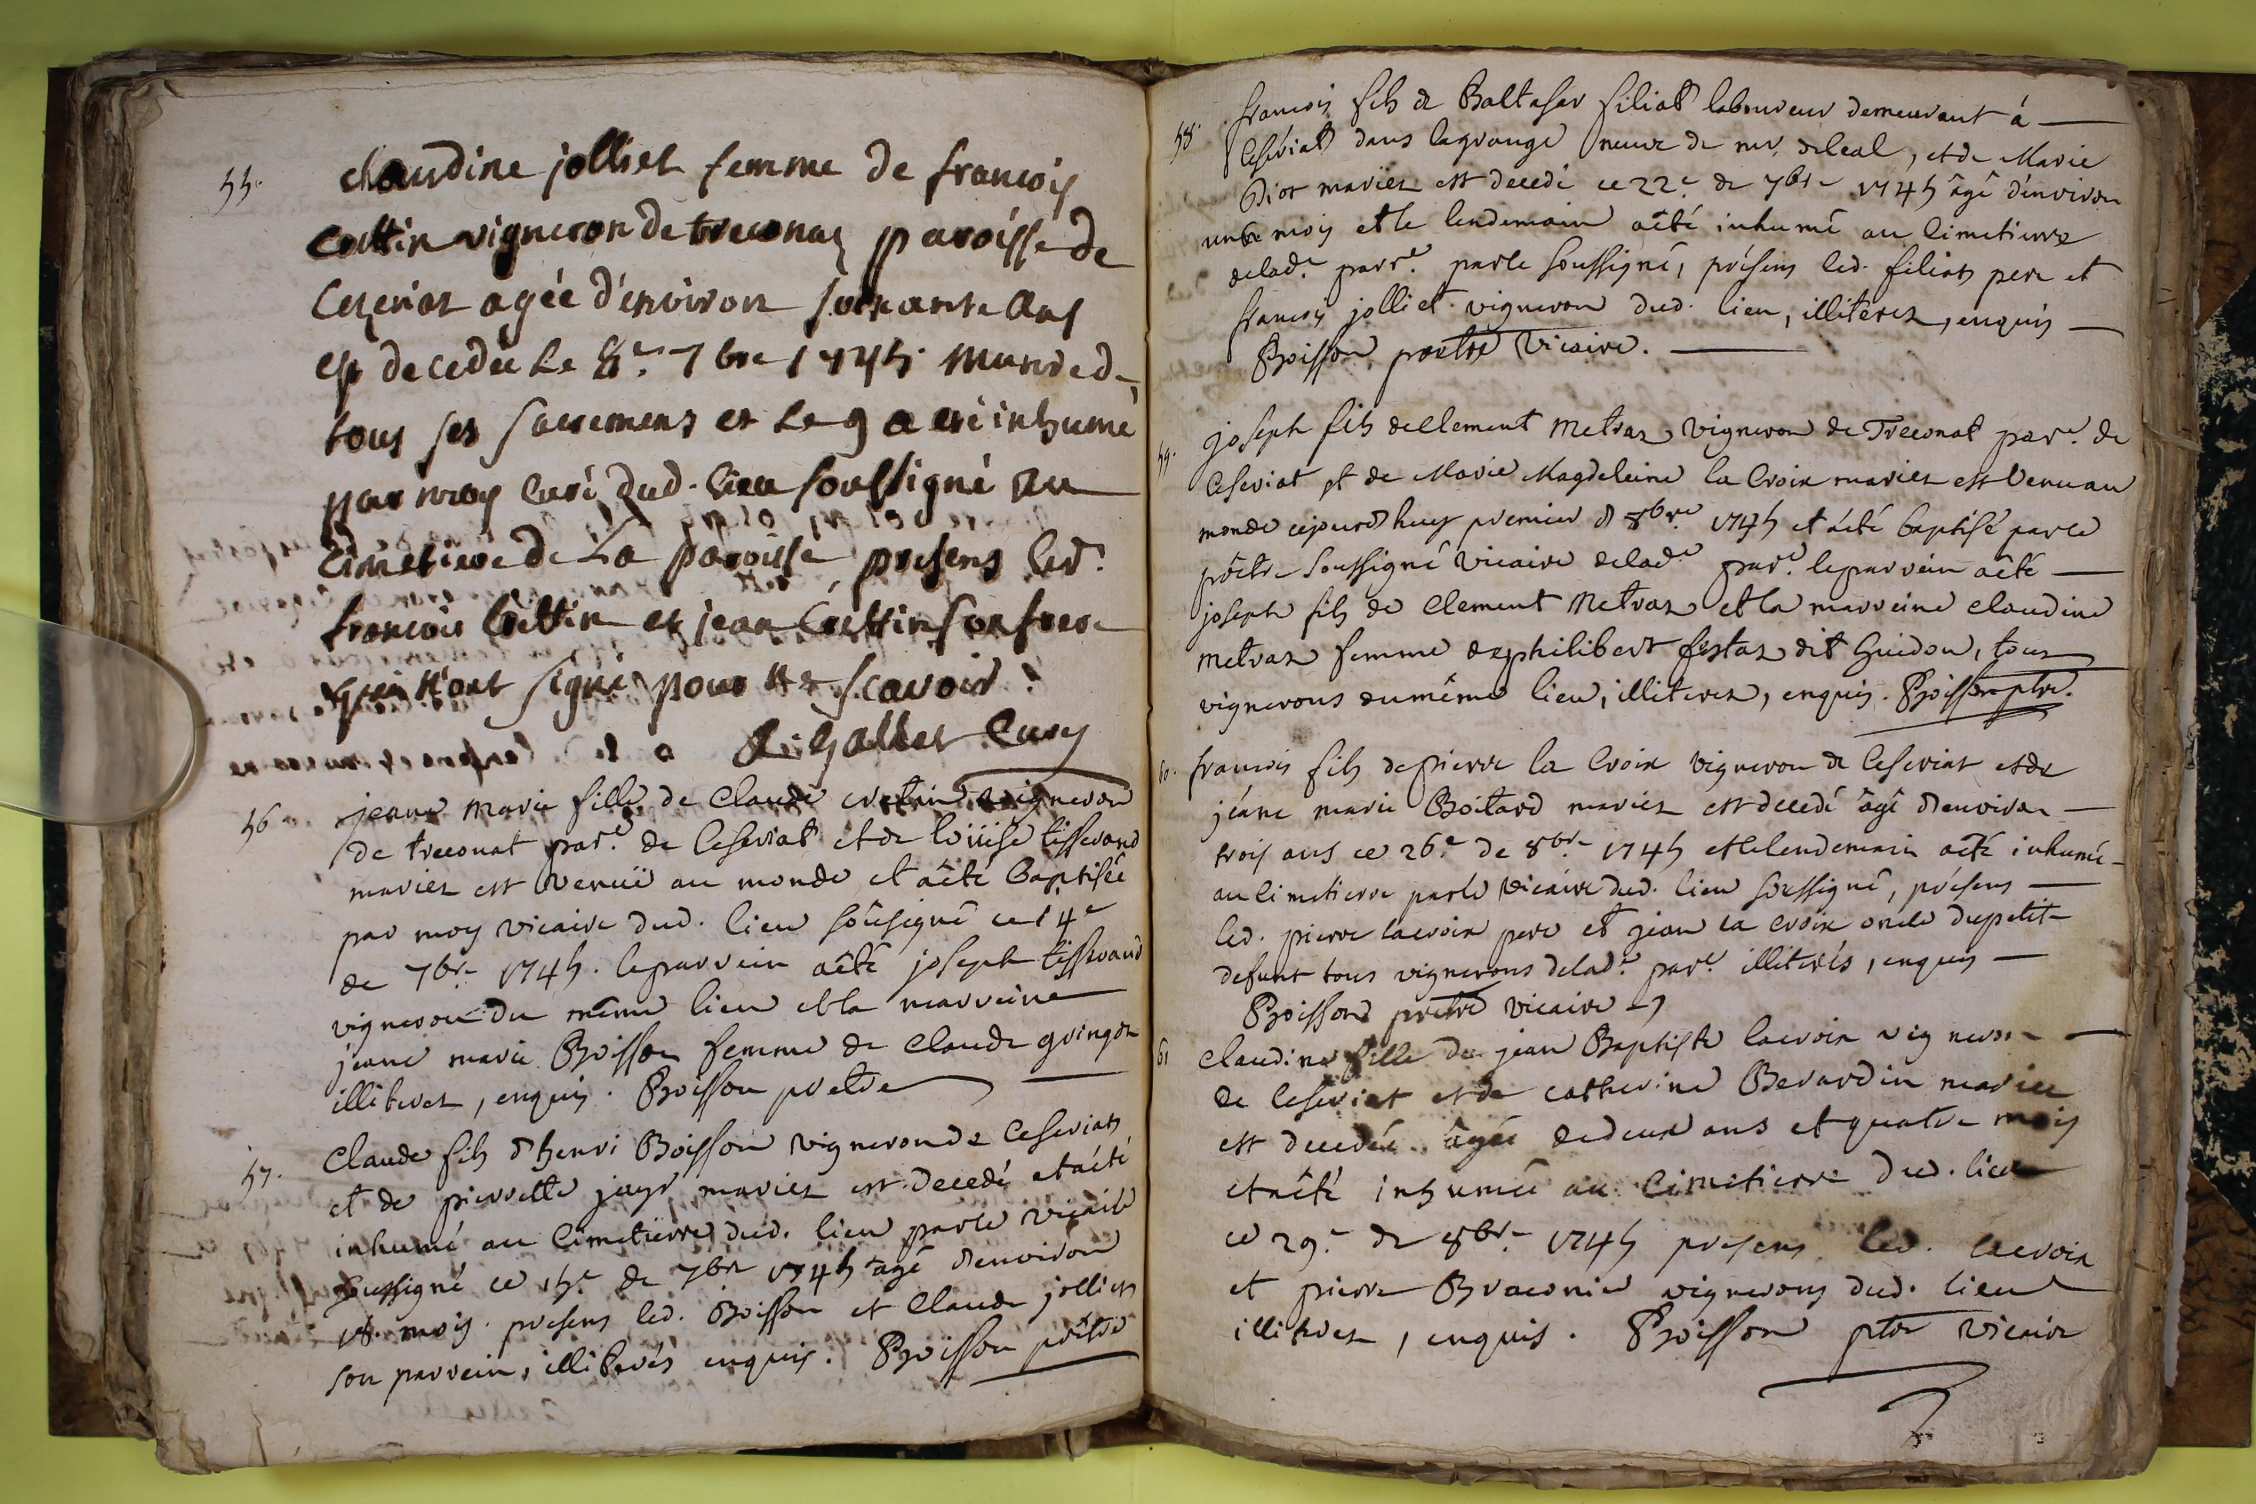 55.
claudine jolliet femme de francois
Crettin vigneron de treconas paroisse de
Ceseriat agée d'environ soixante ans
est decedée Le 8e. 7bre 1745. Munie de
tous ses sacremens et Le 9 a été inhumé
par moy curé dud. lieu soussigné au
Cimetiere de La paroisse presens led.
francois Crettin et jean Crettin son frere
qui n'ont signé pour ne scavoir.
Gallet Curé
56.
jeane marie fille de Claude cretin vigneron
de treconat par.e de Ceseriat et de loüise tisserand
mariez est venuë au monde et aêté baptisée
par moy vicaire dud. lieu soûsigné ce 14e
de 7bre 1745. leparrein aêté joseph tisserand
vigneron du même lieu et la marreine
jeane marie Boisson femme de Claude gringoz
illiterez, enquis. Boisson pretre
57.
Claude fils d'henri Boisson vigneron de Ceseriat
et de pierrette jayr mariez est decedé et aété
inhumé au Cimetierre dud. lieu parle vicaire
soussigné ce 15e de 7bre 1745 âgé denviron
18. mois. presens led. Boisson et Claude jolliet
son parrein, illiterés enquis. Boisson prêtre
58.
francois fils de Baltasar filiat laboureur demeurant á
Ceseriat dans lagrange neuve de mr. deleal, et de Marie
Diot mariez est decedé ce 22e de 7bre 1745 âgé d'environ
un mois et le lendemain aêté inhumé au Cimetierre
delad.e parr.e parle soussigné, présens led. filiat pere et
francois jolliet vigneron dud. lieu, illiterez, enquis
Boisson prêtre Vicaire.
59.
joseph fils declement Metraz vigneron de Treconat par.e de
Ceseriat et de Marie Magdeleine la Croix mariez est venu au
monde cejourdhuy premier d 8bre 1745 et aété baptisé parle
prêtre soussigné vicaire delad.e par.e leparrein aêté
joseph fils de Clement Metraz et la marreine claudine
Metraz femme dephilibert festaz dit Guidon, tous
vignerons dumême lieu, illiterez, enquis. Boisson ptre.
60.
francois fils depierre la Croix vigneron de Ceseriat et de
jéane marie Boitard mariez est decedé âgé d'environ
trois ans ce 26e de 8bre 1745 et lelendemain aêté inhumé
au Cimetierre parle vicaire dud. lieu soussigné, présens
led. pierre lacroix pere et jean la croix oncle dupetit
defunt tous vignerons delad.e par.e illiterés, enquis
Boisson pretre vicaire
61
Claudine fille de jean Baptiste lacroix vigneron
de Ceseriat et de catherine Berardin mariez
est decedée âgée dedeux ans et quatre mois
et aêté inhumée au Cimetierre dud. lieu
ce 29e de 8bre 1745 presens led. lacroix
et pierre Braconier vignerons dud. lieu
illiterez, enquis. Boisson ptre vicaire